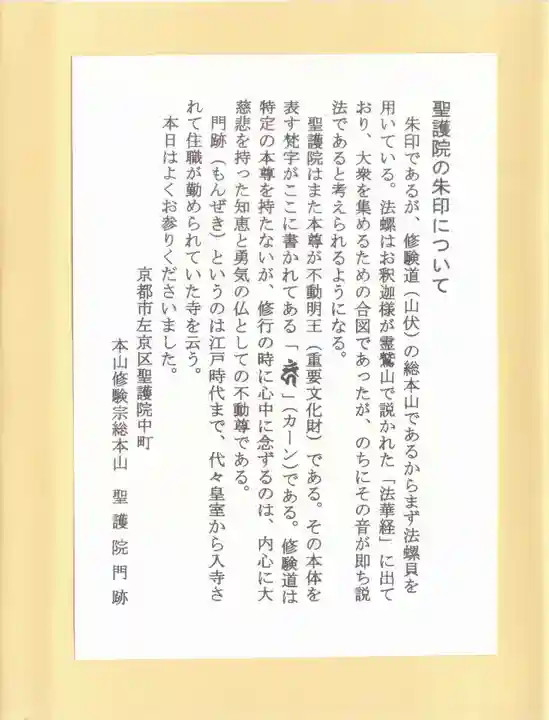 聖護院の朱印について
朱印であるが、修験道（山伏）の総本山であるからまず法螺貝を
用いている。法螺はお釈迦様が霊鷲山で説かれた「法華経」に出て
おり、大衆を集めるための合図であったが、のちにその音が即ち説
法であると考えられるようになる。
聖護院はまた本尊が不動明王（重要文化財）である。その本体を
表す梵字がここに書かれてある「」（カーン）である。修験道は
特定の本尊を持たないが、修行の時に心中に念ずるのは、内心に大
慈悲を持った知恵と勇気の仏としての不動尊である。
門跡（もんぜき）というのは江戸時代まで、代々皇室から入寺さ
れて住職が勤められていた寺を云う。
本日はよくお参りくださいました。
京都市左京区聖護院中町
本山修験宗総本山　聖護院門跡